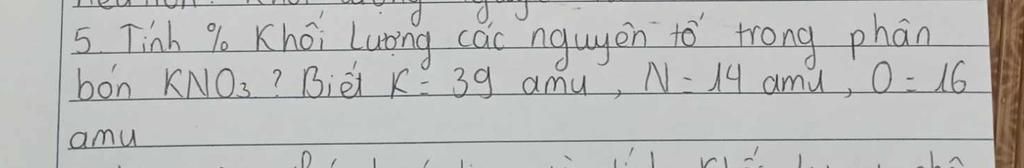 5. Tính % Khối Lượng các nguyên tố trong phân
bón KNO₃? Biết K = 39 amu, N = 14 amu, O = 16
amu